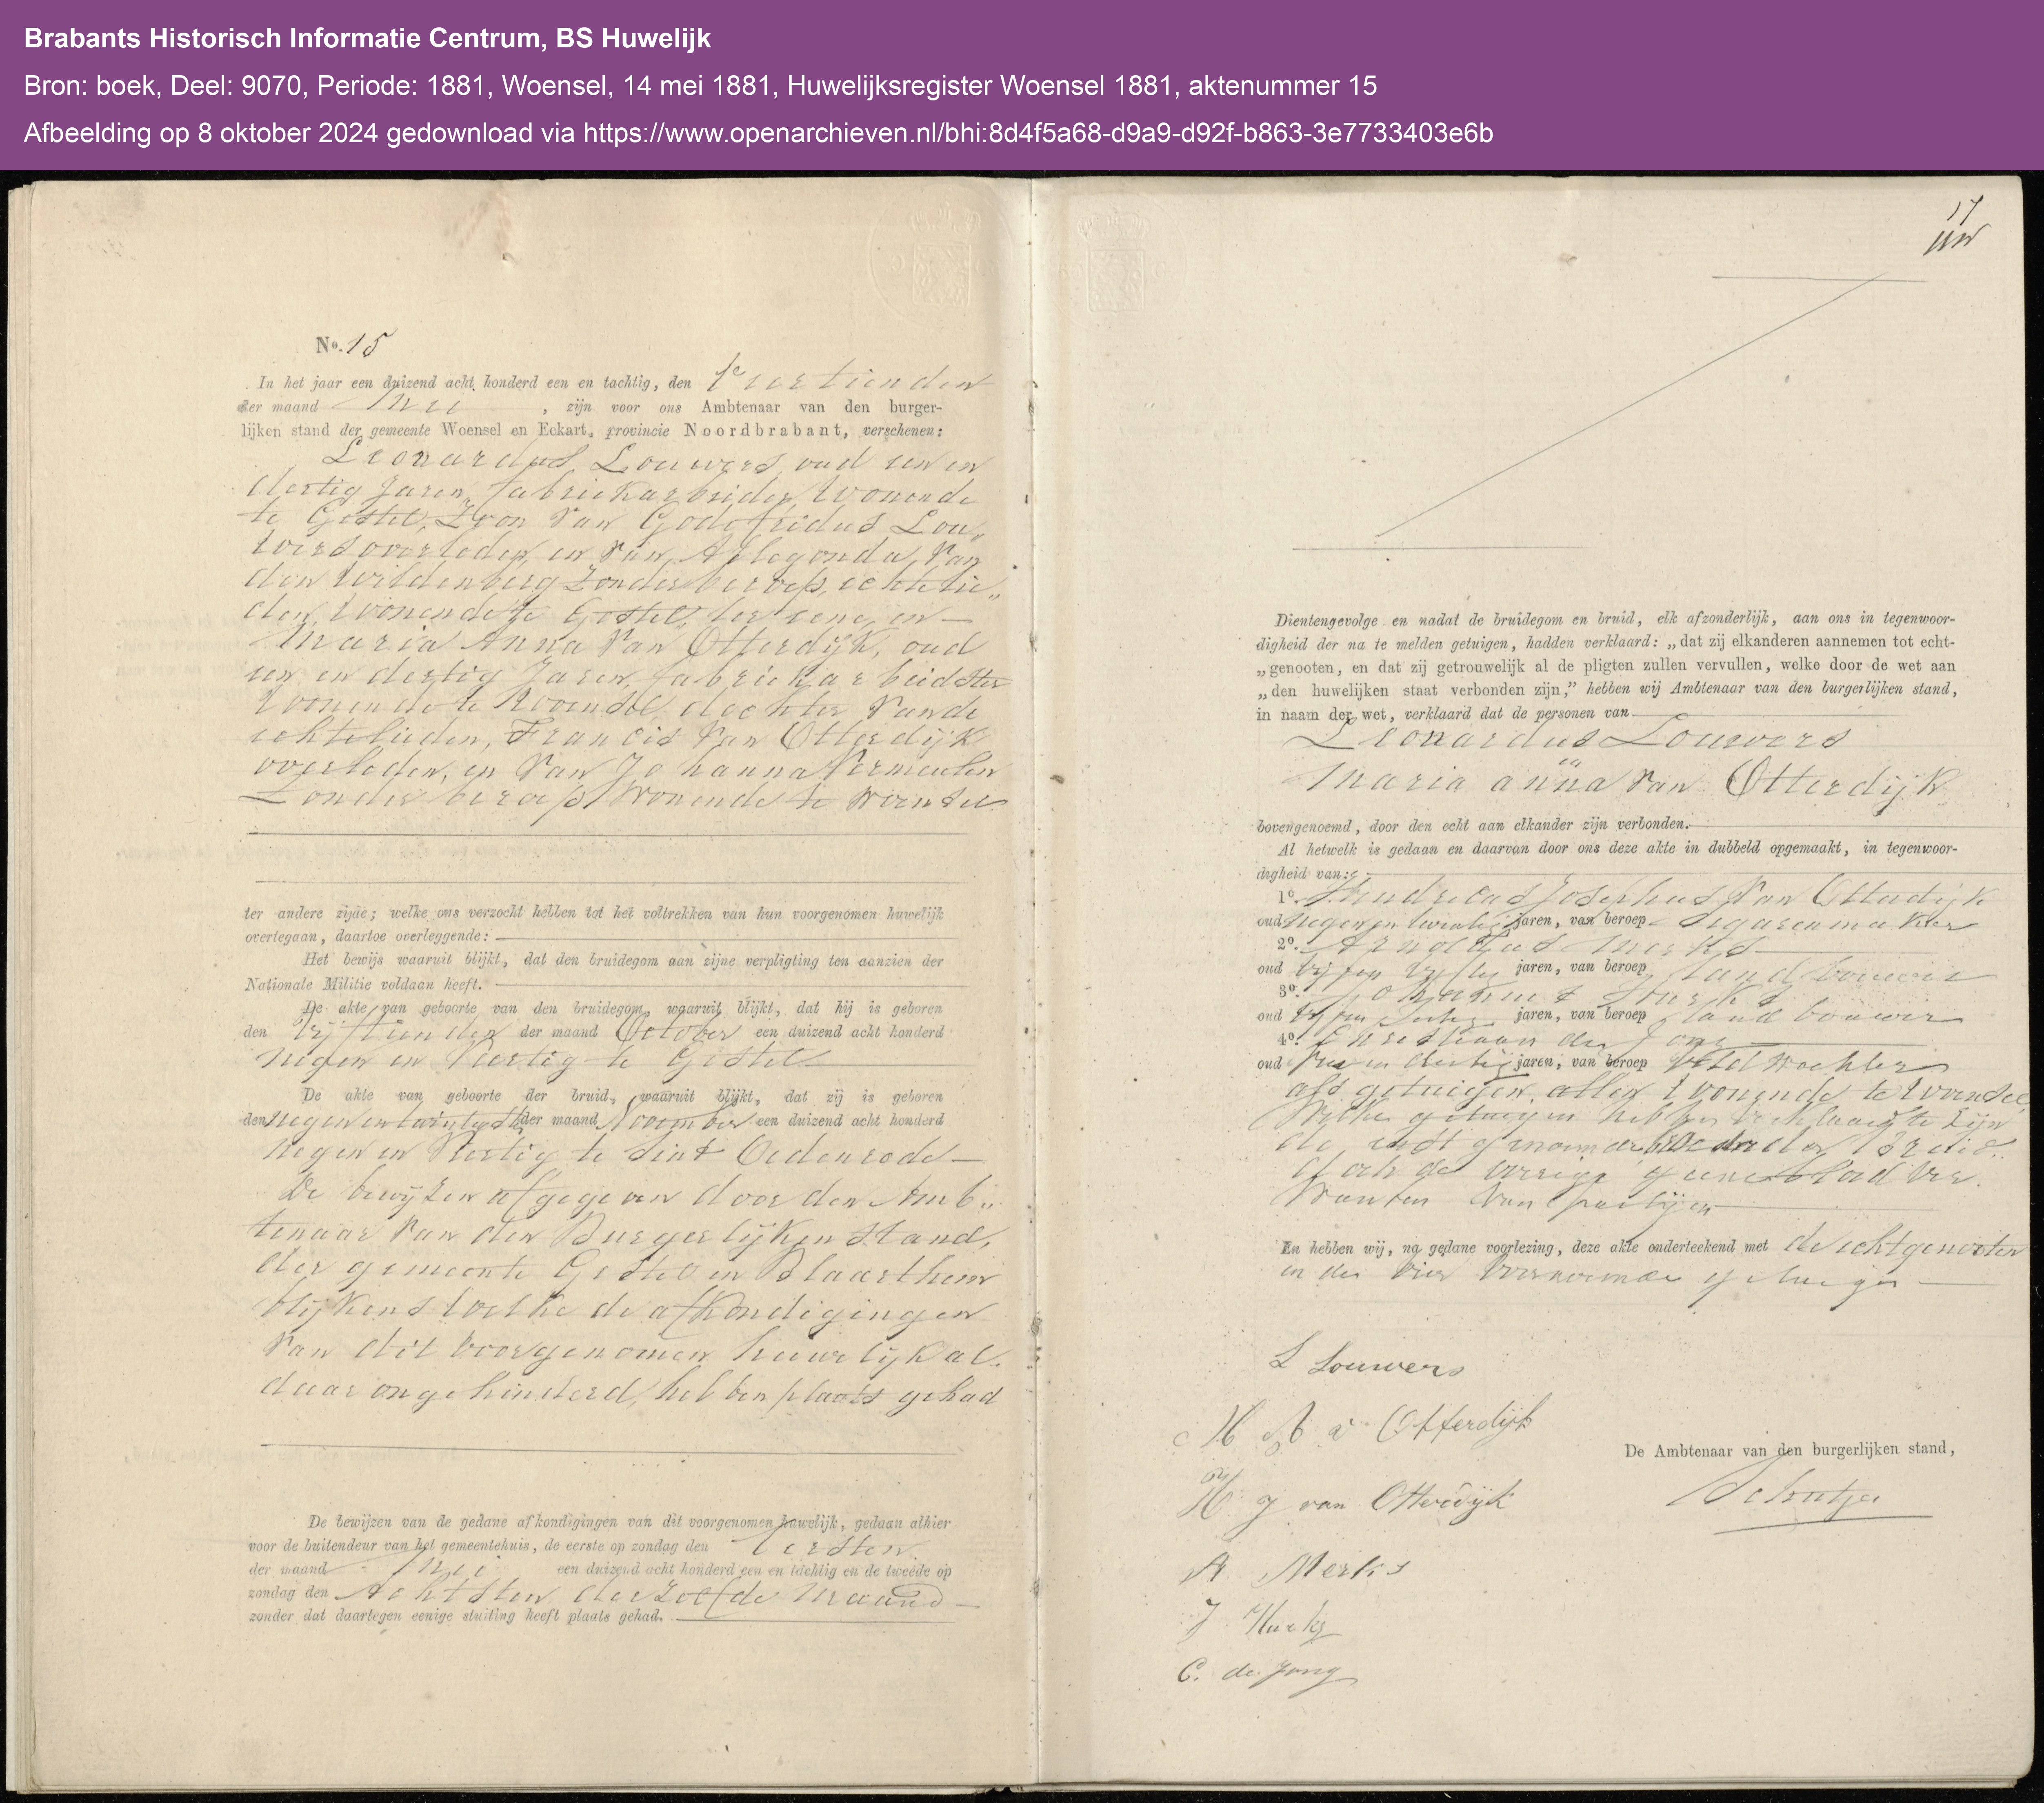 Brabants Historisch Informatie Centrum, BS Huwelijk
Bron: boek, Deel: 9070, Periode: 1881, Woensel, 14 mei 1881, Huwelijksregister Woensel 1881, aktenummer 15
Afbeelding op 8 oktober 2024 gedownload via https://www.openarchieven.nl/bhi:8d4f5a68-d9a9-d92f-b863-3e7733403e6b
No. 15
In het jaar een duizend acht honderd een en tachtig, den Veertienden
der maand Mei, zijn voor ons Ambtenaar van den burger-
lijken stand der gemeente Woensel en Eckart, provincie Noordbrabant, verschenen:
Leonardus Louwers, oud een en
dertig Jaren, fabriekarbeider, Wonende
te Gestel, Zoon van Godefridus Lou„
wers overleden, en van Aldegonda van
den Wildenberg Zonder beroep, echtelie„
den, Wonende te Gestel, ter eene, en
Maria Anna van Otterdijk, oud
een en dertig Jaren, fabriekarbeidster
Wonende te Woensel, dochter van de
echtelieden, Francis van Otterdijk
overleden, en van Johanna Vermeulen
Zonder beroep Wonende te Woensel
ter andere zijde; welke ons verzocht hebben tot het voltrekken van hun voorgenomen huwelijk
overtegaan, daartoe overleggende:
Het bewijs waaruit blijkt, dat den bruidegom aan zijne verpligting ten aanzien der
Nationale Militie voldaan heeft.
De akte van geboorte van den bruidegom, waaruit blijkt, dat hij is geboren
den Vijftienden der maand October een duizend acht honderd
negen en Veertig te Gestel
De akte van geboorte der bruid, waaruit blijkt, dat zij is geboren
den negen en twintigsten der maand November een duizend acht honderd
negen en Veertig te Sint Oedenrode
De bewijzen afgegeven door den Amb„
tenaar van den Burgerlijken stand,
der gemeente Gestel en Blaarthem
blijkens welke de afkondigingen
van dit voorgenomen huwelijk al„
daar ongehinderd, hebben plaats gehad
De bewijzen van de gedane afkondigingen van dit voorgenomen huwelijk, gedaan alhier
voor de buitendeur van het gemeentehuis, de eerste op zondag den Eersten
der maand Mei een duizend acht honderd een en tachtig en de tweede op
zondag den Achtsten derzelfde maand
zonder dat daartegen eenige stuiting heeft plaats gehad.
17
Dientengevolge en nadat de bruidegom en bruid, elk afzonderlijk, aan ons in tegenwoor-
digheid der na te melden getuigen, hadden verklaard: „dat zij elkanderen aannemen tot echt-
„genooten, en dat zij getrouwelijk al de pligten zullen vervullen, welke door de wet aan
„den huwelijken staat verbonden zijn,” hebben wij Ambtenaar van den burgerlijken stand,
in naam der wet, verklaard dat de personen van
Leonardus Louwers
en
Maria anna van Otterdijk
bovengenoemd, door den echt aan elkander zijn verbonden.
Al hetwelk is gedaan en daarvan door ons deze akte in dubbeld opgemaakt, in tegenwoor-
digheid van:
1o. Hendricus Josephus van Otterdijk
oud negen en twintig jaren, van beroep Sigarenmaker
2o. Arnoldus Merks
oud vijf en vijftig jaren, van beroep landbouwer
3o. Johannes Hurks
oud jaren, van beroep landbouwer
4o. Christiaan de Jong
oud en dertig jaren, van beroep Veldwachter
als getuigen, allen Wonende te Woensel,
Welke getuigen hebben verklaard te zijn
de eerstgenoemde broeder der Bruid„
doch de overige geene bloedver„
wanten van partijen
En hebben wij, na gedane voorlezing, deze akte onderteekend met de echtgenooten
en de vier voornoemde getuigen
L Louwers
M A v Otterdijk
H J van Otterdijk
De Ambtenaar van den burgerlijken stand,
Schutje
A Merks
J Hurks
C. de Jong